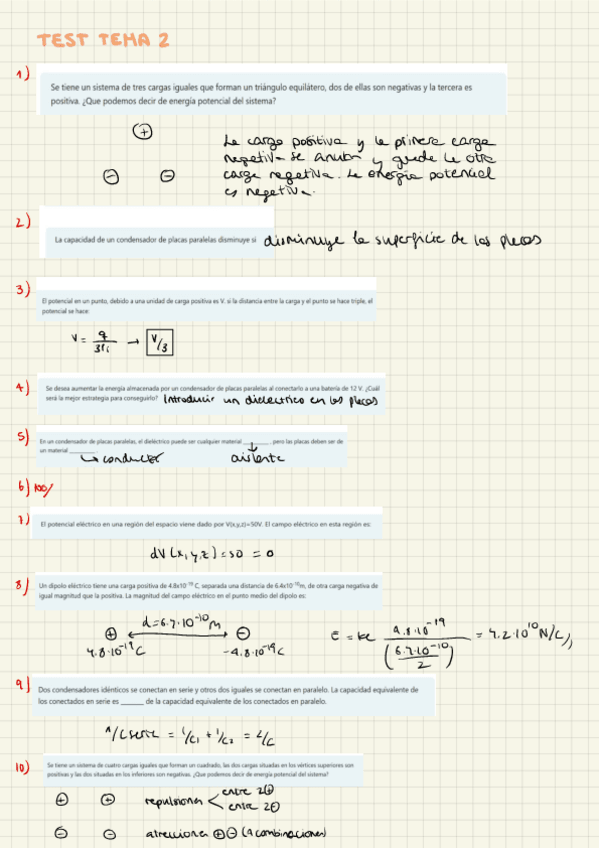 TEST TEMA 2
1)
Se tiene un sistema de tres cargas iguales que forman un triángulo equilátero, dos de ellas son negativas y la tercera es
positiva. ¿Que podemos decir de energía potencial del sistema?
+
La carga positiva y la primera carga
negativa se anulan y queda la otra
- -
carga negativa. La energía potencial
es negativa.
2)
La capacidad de un condensador de placas paralelas disminuye si disminuye la superficie de las placas
3)
El potencial en un punto, debido a una unidad de carga positiva es V. si la distancia entre la carga y el punto se hace triple, el
potencial se hace:
V = q/3ri → V/3
4)
Se desea aumentar la energía almacenada por un condensador de placas paralelas al conectarlo a una batería de 12 V. ¿Cuál
será la mejor estrategia para conseguirlo? Introducir un dielectrico en las placas
5)
En un condensador de placas paralelas, el dieléctrico puede ser cualquier material ________ , pero las placas deben ser de
un material ________
↳ conductor ↓ aislante
6) 100/
7)
El potencial eléctrico en una región del espacio viene dado por V(x,y,z)=50V. El campo eléctrico en esta región es:
dV(x,y,z) = 50 = 0
8)
Un dipolo eléctrico tiene una carga positiva de 4.8x10⁻¹⁹ C, separada una distancia de 6.4x10⁻¹⁰m, de otra carga negativa de
igual magnitud que la positiva. La magnitud del campo eléctrico en el punto medio del dipolo es:
d=6.4·10⁻¹⁰m
+ ↔ -
4.8·10⁻¹⁹C -4.8·10⁻¹⁹C
E = ke 4.8·10⁻¹⁹/(6.4·10⁻¹⁰/2) = 4.2·10¹⁰ N/C //
9)
Dos condensadores idénticos se conectan en serie y otros dos iguales se conectan en paralelo. La capacidad equivalente de
los conectados en serie es ______ de la capacidad equivalente de los conectados en paralelo.
1/Cserie = 1/C1 + 1/C2 = 2/C
10)
Se tiene un sistema de cuatro cargas iguales que forman un cuadrado, las dos cargas situadas en los vértices superiores son
positivas y las dos situadas en los inferiores son negativas. ¿Que podemos decir de energía potencial del sistema?
+ + repulsiones < entre 2⊕
entre 2⊖
- - atracciones ⊕⊖ (4 combinaciones)